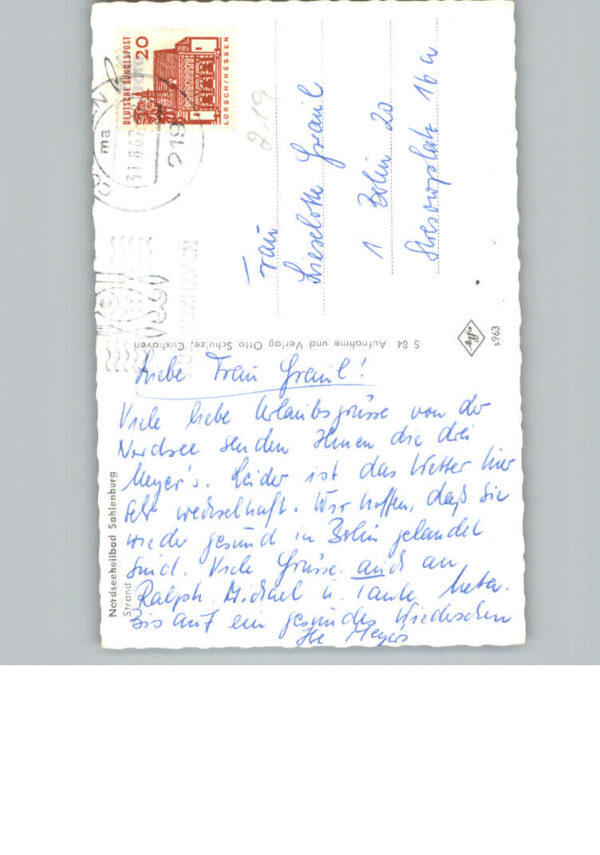 DEUTSCHE BUNDESPOST
20
LORSCH/HESSEN
ma
31.8.67
219
CUXHAVEN
219
Frau
Lieselotte Graul
1 Berlin 20
Stresowplatz 16a
S 84 Aufnahme und Verlag Otto Schulze, Cuxhaven
Agfa
s963
Nordseeheilbad Sahlenburg
Strand
Liebe Frau Graul!
Viele liebe Urlaubsgrüsse von der
Nordsee senden Ihnen die drei
Meyer's. Leider ist das Wetter hier
sehr wechselhaft. Wir hoffen, daß Sie
wieder gesund in Berlin gelandet
sind. Viele Grüsse auch an
Ralph, Michael u. Tante Meta.
Bis auf ein gesundes Wiedersehen
Ihre Meyers